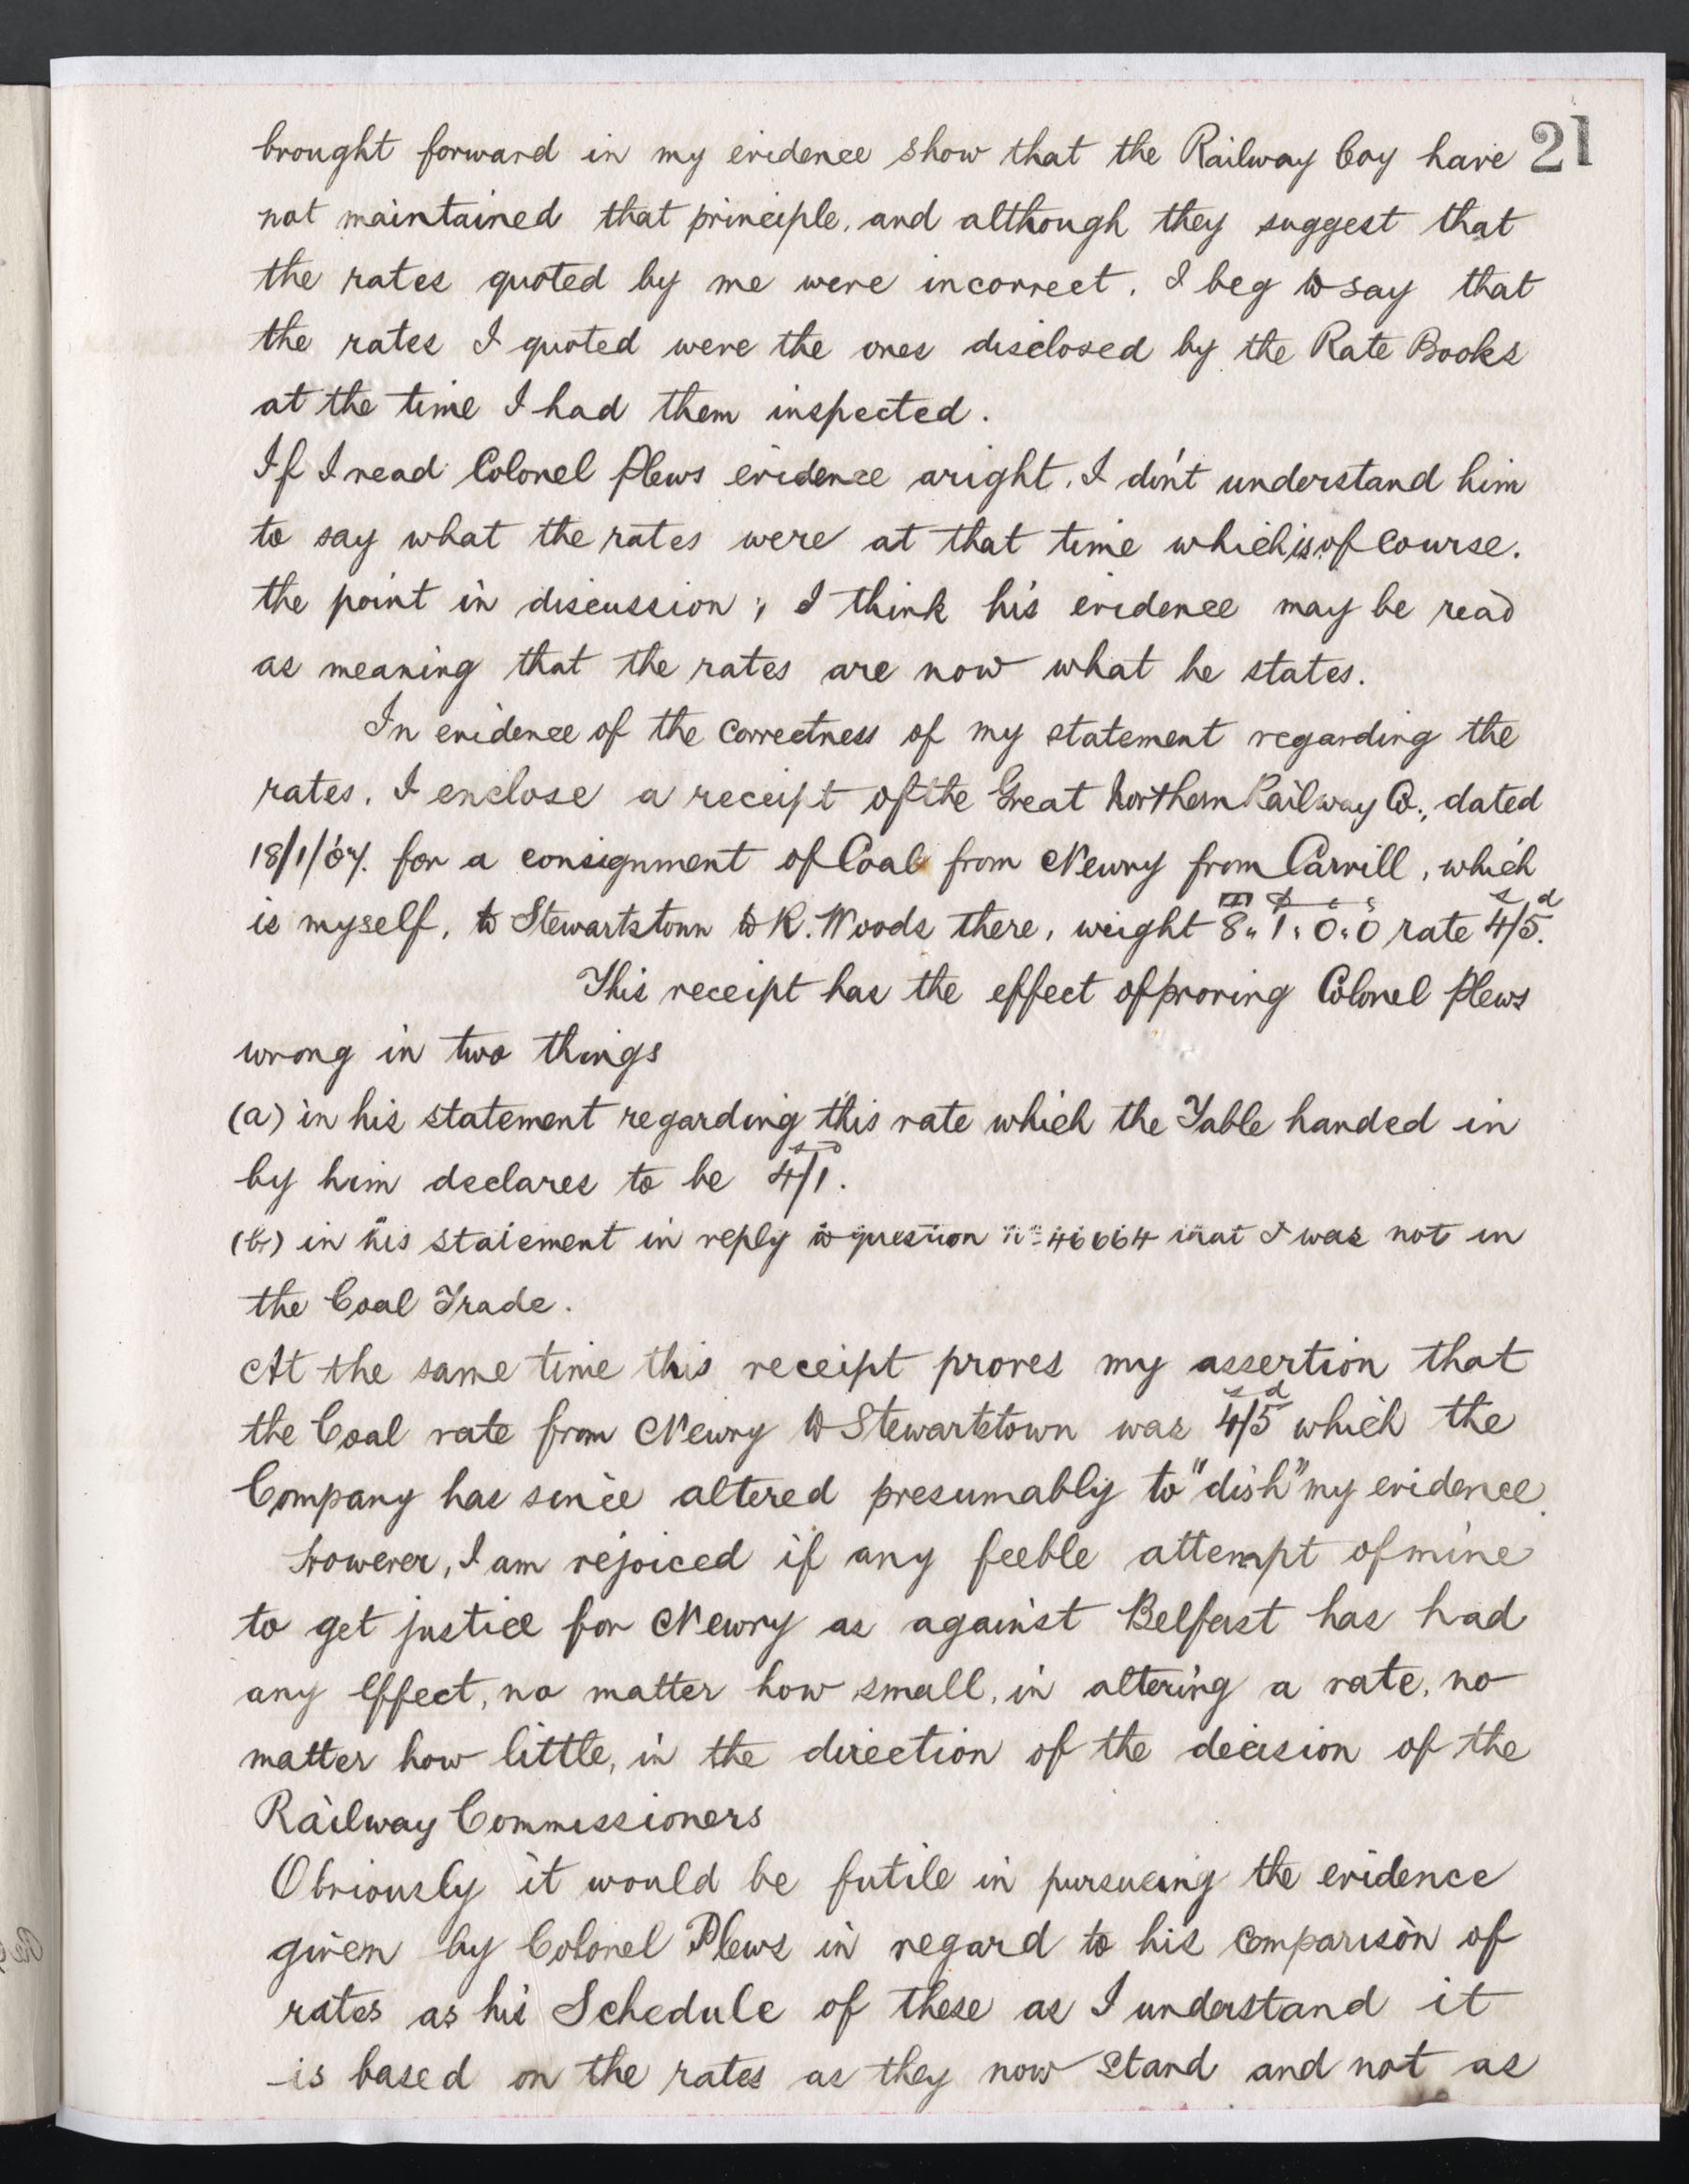 21
brought forward in my evidence show that the Railway Coy have
not maintained that principle, and although they suggest that
the rates quoted by me were incorrect. I beg to say that
the rates I quoted were the ones disclosed by the Rate Books
at the time I had them inspected.
If I read Colonel Plews evidence aright, I din't understand him
to say what the rates were at that time which is of course.
the point in discussion; I think his evidence may be read
as meaning that the rates are now what he states.
In evidence of the correctness of my statement regarding the
rates. I enclose a receipt of the Great Northern Railway Co., dated
18/1/07. for a consignment of Coal from Newry from Carvill, which
is myself, to Stewartstown to R. Woods there, weight 8" 1" 0" 0 rate 4/5.
This receipt has the effect of proving Colonel Plews
wrong in two things
(a) in his statement regarding this rate which the Table handed in
by him declares to be 4/1.
(b) in his statement in reply to question No 46664 that I was not in
the Coal Trade.
At the same time this receipt proves my assertion that
the Coal rate from Newry to Stewartstown was 4/5 which the
Company has since altered presumably to "dish" my evidence.
However, I am rejoiced if any feeble attempt of mine
to get justice for Newry as against Belfast has had
any effect, no matter how small, in altering a rate, no
matter how little, in the direction of the decision of the
Railway Commissioners
Obviously it would be futile in pursueing the evidence
given by Colonel Plews in regard to his comparison of
rates as his Schedule of these as I understand it
is based on the rates as they now stand and not as